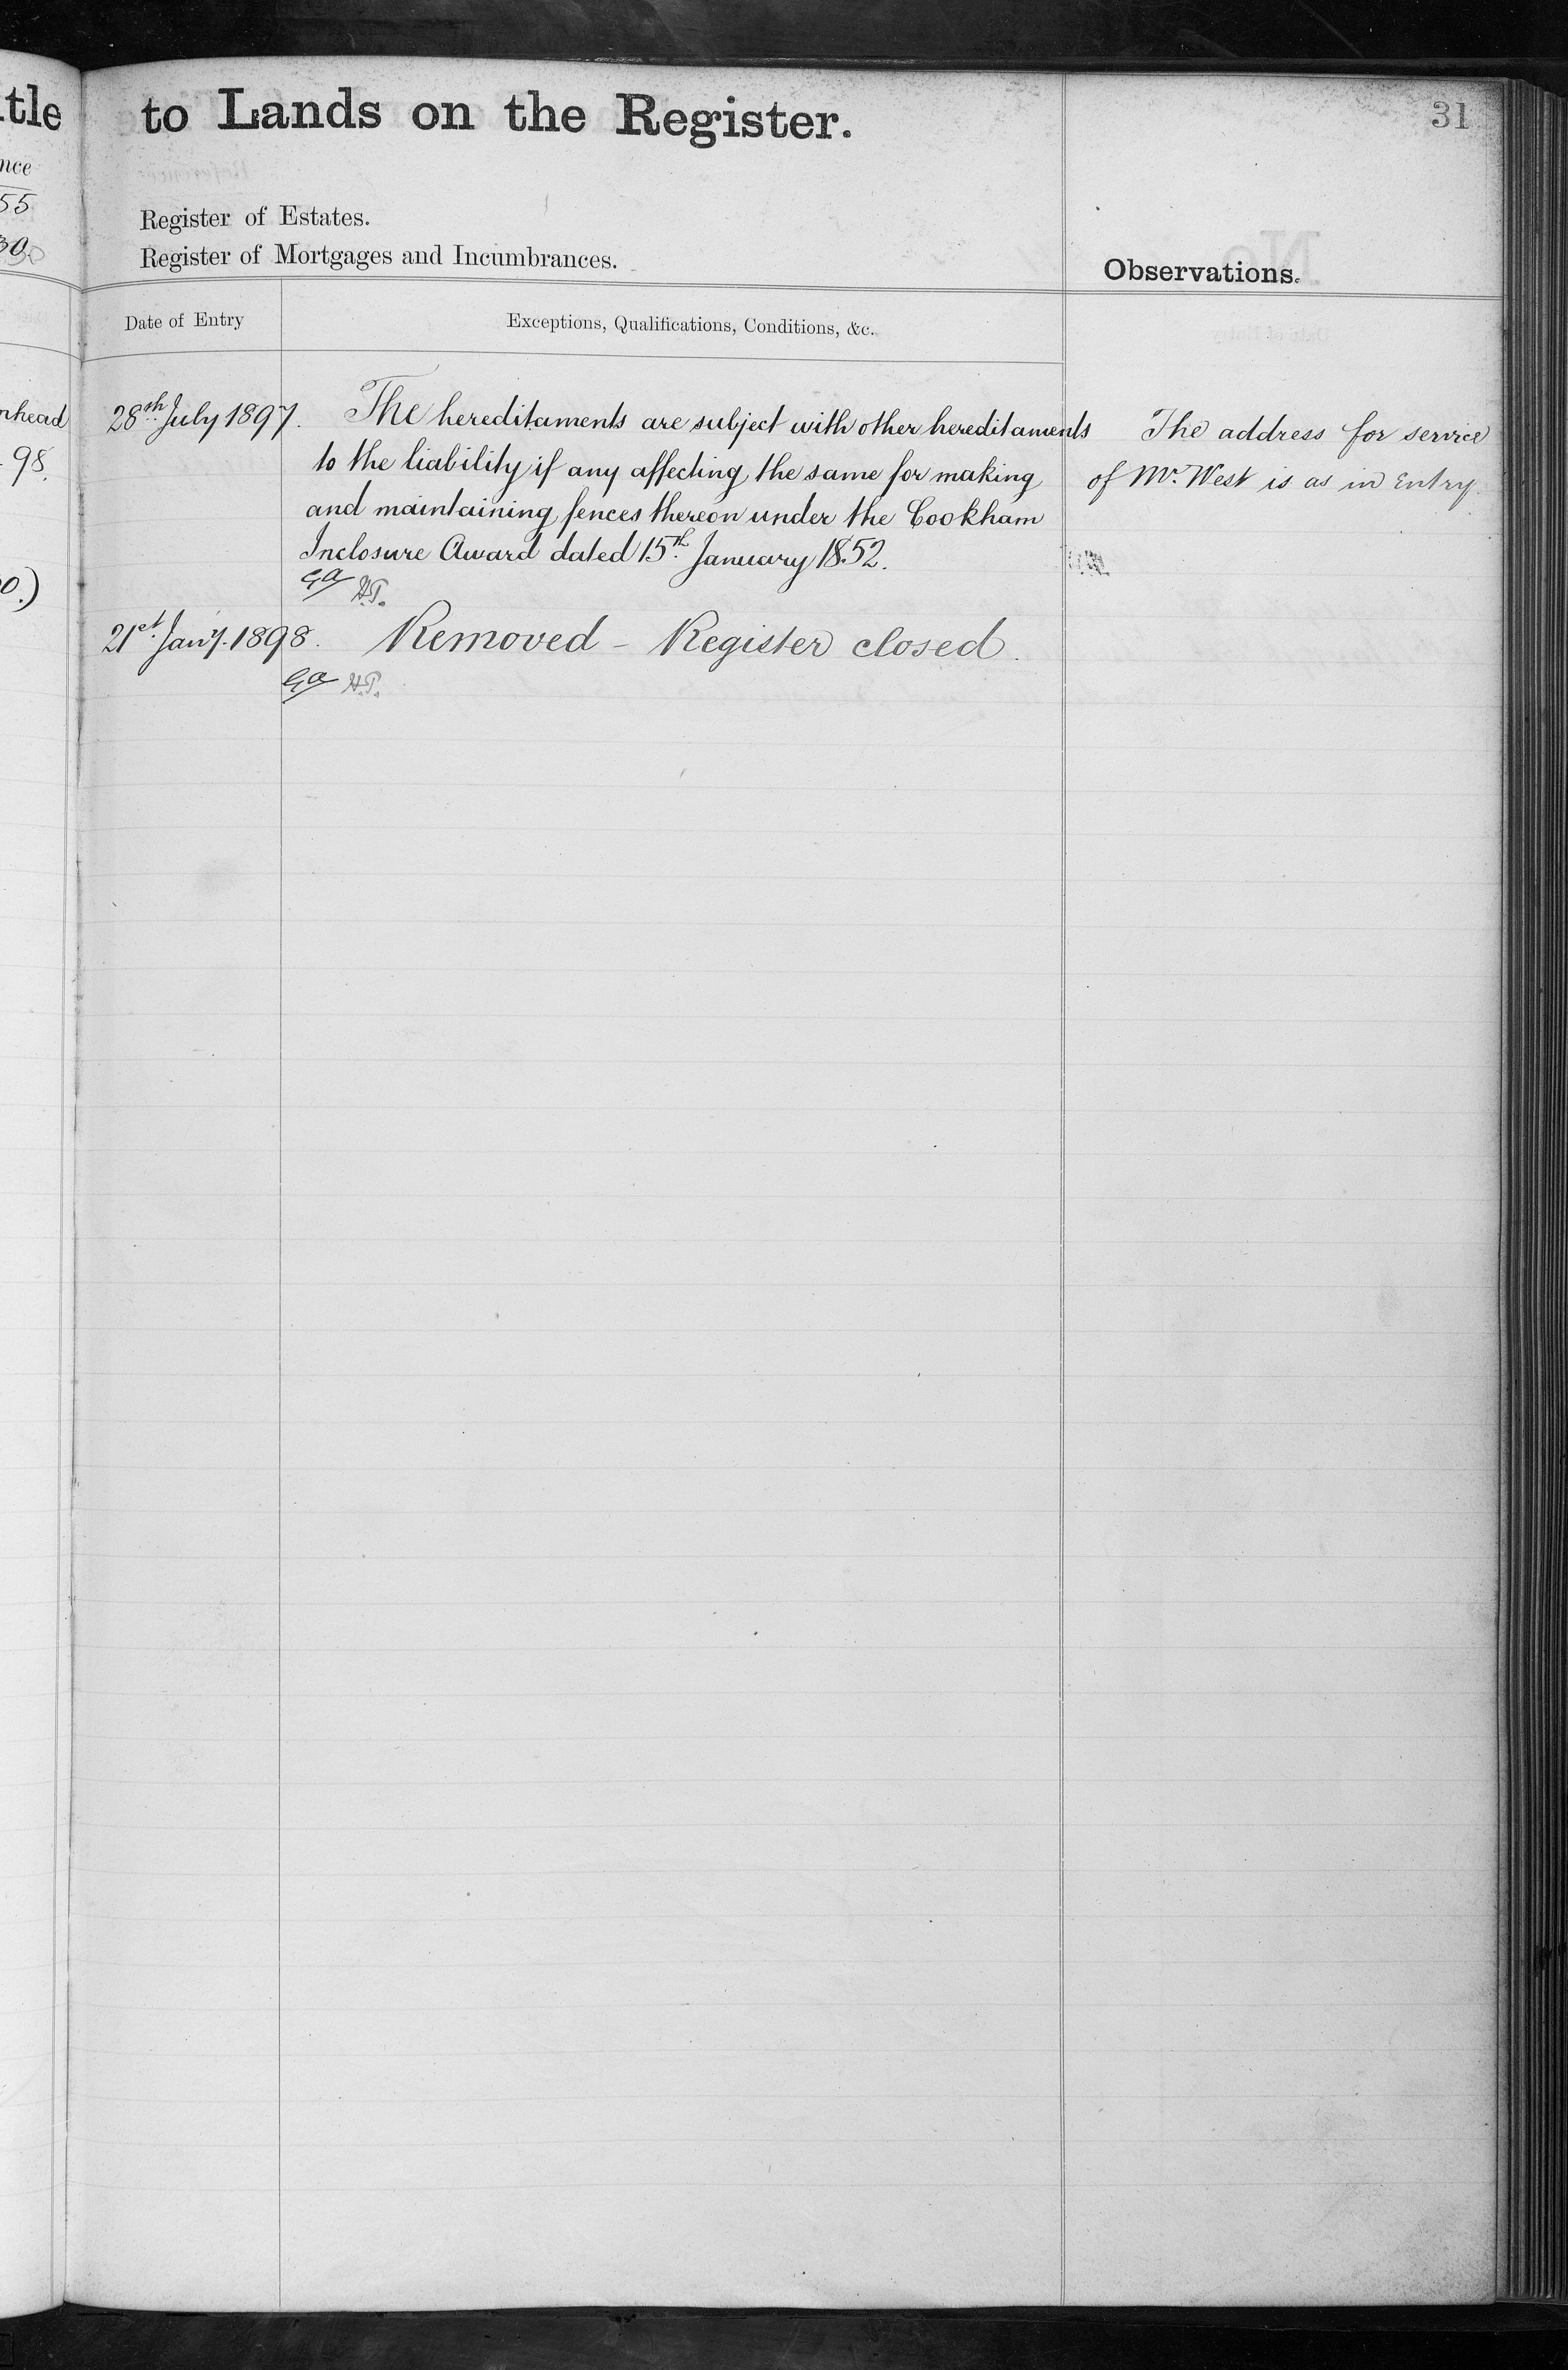 tle
nce
55
30
nhead
98.
0.)
to Lands on the Register.
31
Register of Estates.
Register of Mortgages and Incumbrances.
Observations.
Date of Entry
Exceptions, Qualifications, Conditions, &c.
28th July 1897.
The hereditaments are subject with other hereditaments
to the liability if any affecting the same for making
and maintaining fences thereon under the Cookham
Inclosure Award dated 15th January 1852.
H.P.
21st Jany. 1898.
Removed - Register closed.
H.P.
The address for service
of Mr. West is as in Entry.